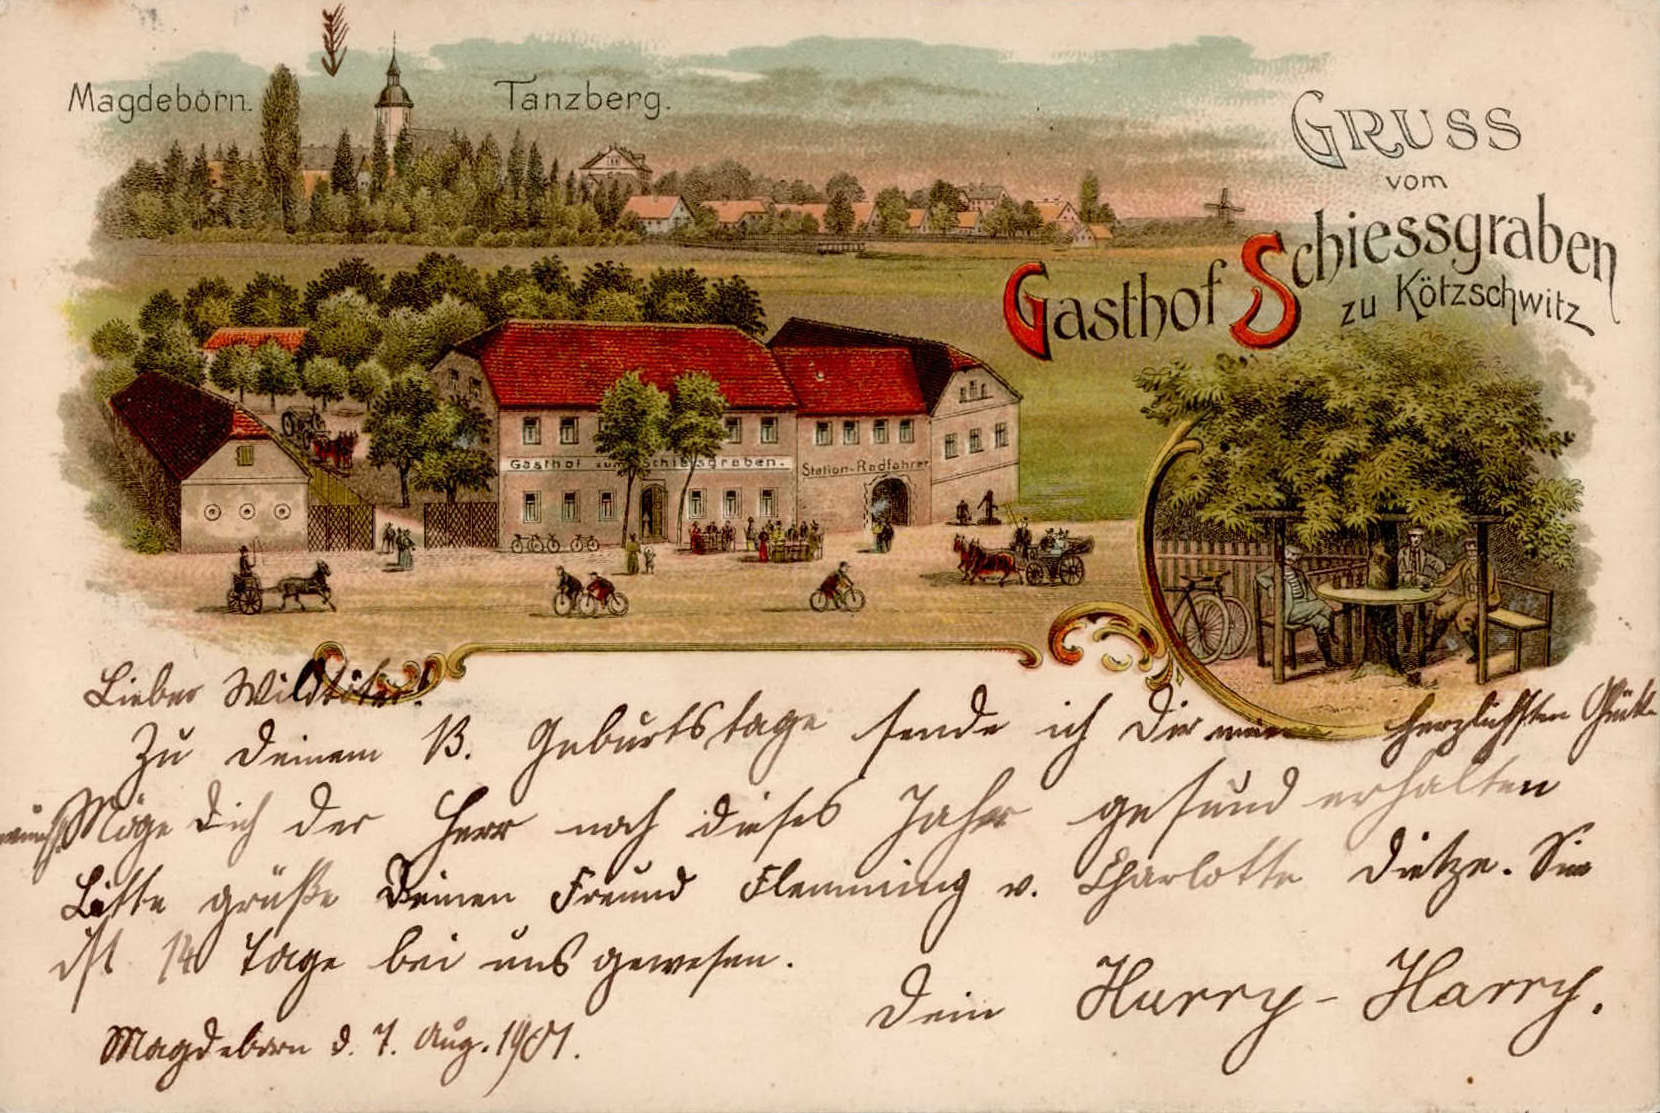 Magdeborn.
Tanzberg.
GRUSS
vom
Gasthof Schiessgraben
zu Kötzschwitz
Gasthof zum Schiessgraben.
Station-Radfahrer
Lieber Wildtöter!
Zu Deinem 13. Geburtstage sende ich Dir meine herzlichsten Glück-
wünsche. Möge Dich der Herr noch dieses Jahr gesund erhalten
Bitte grüße Deinen Freund Flemming v. Charlotte Dietze. Sie
ist 14 Tage bei uns gewesen.
Dein Harry-Harry.
Magdeborn d. 7. Aug. 1901.